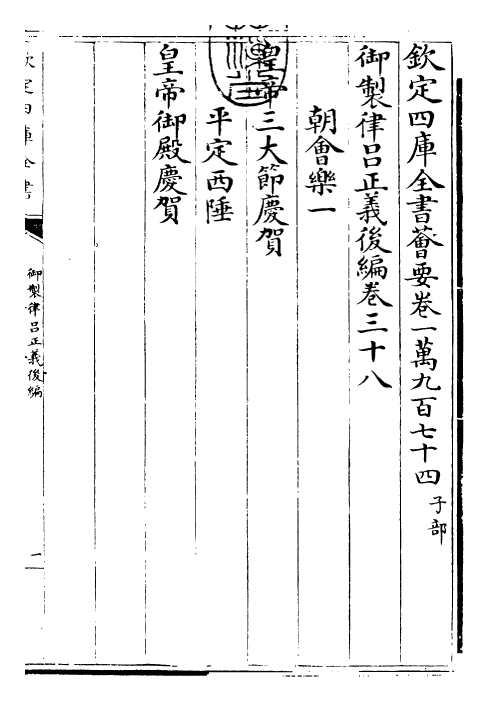 欽定四庫全書薈要卷一萬九百七十四 子部
御製律呂正義後編卷三十八
朝會樂一
皇帝三大節慶賀
平定西陲
皇帝御殿慶賀
欽定四庫全書
御製律呂正義後編
一